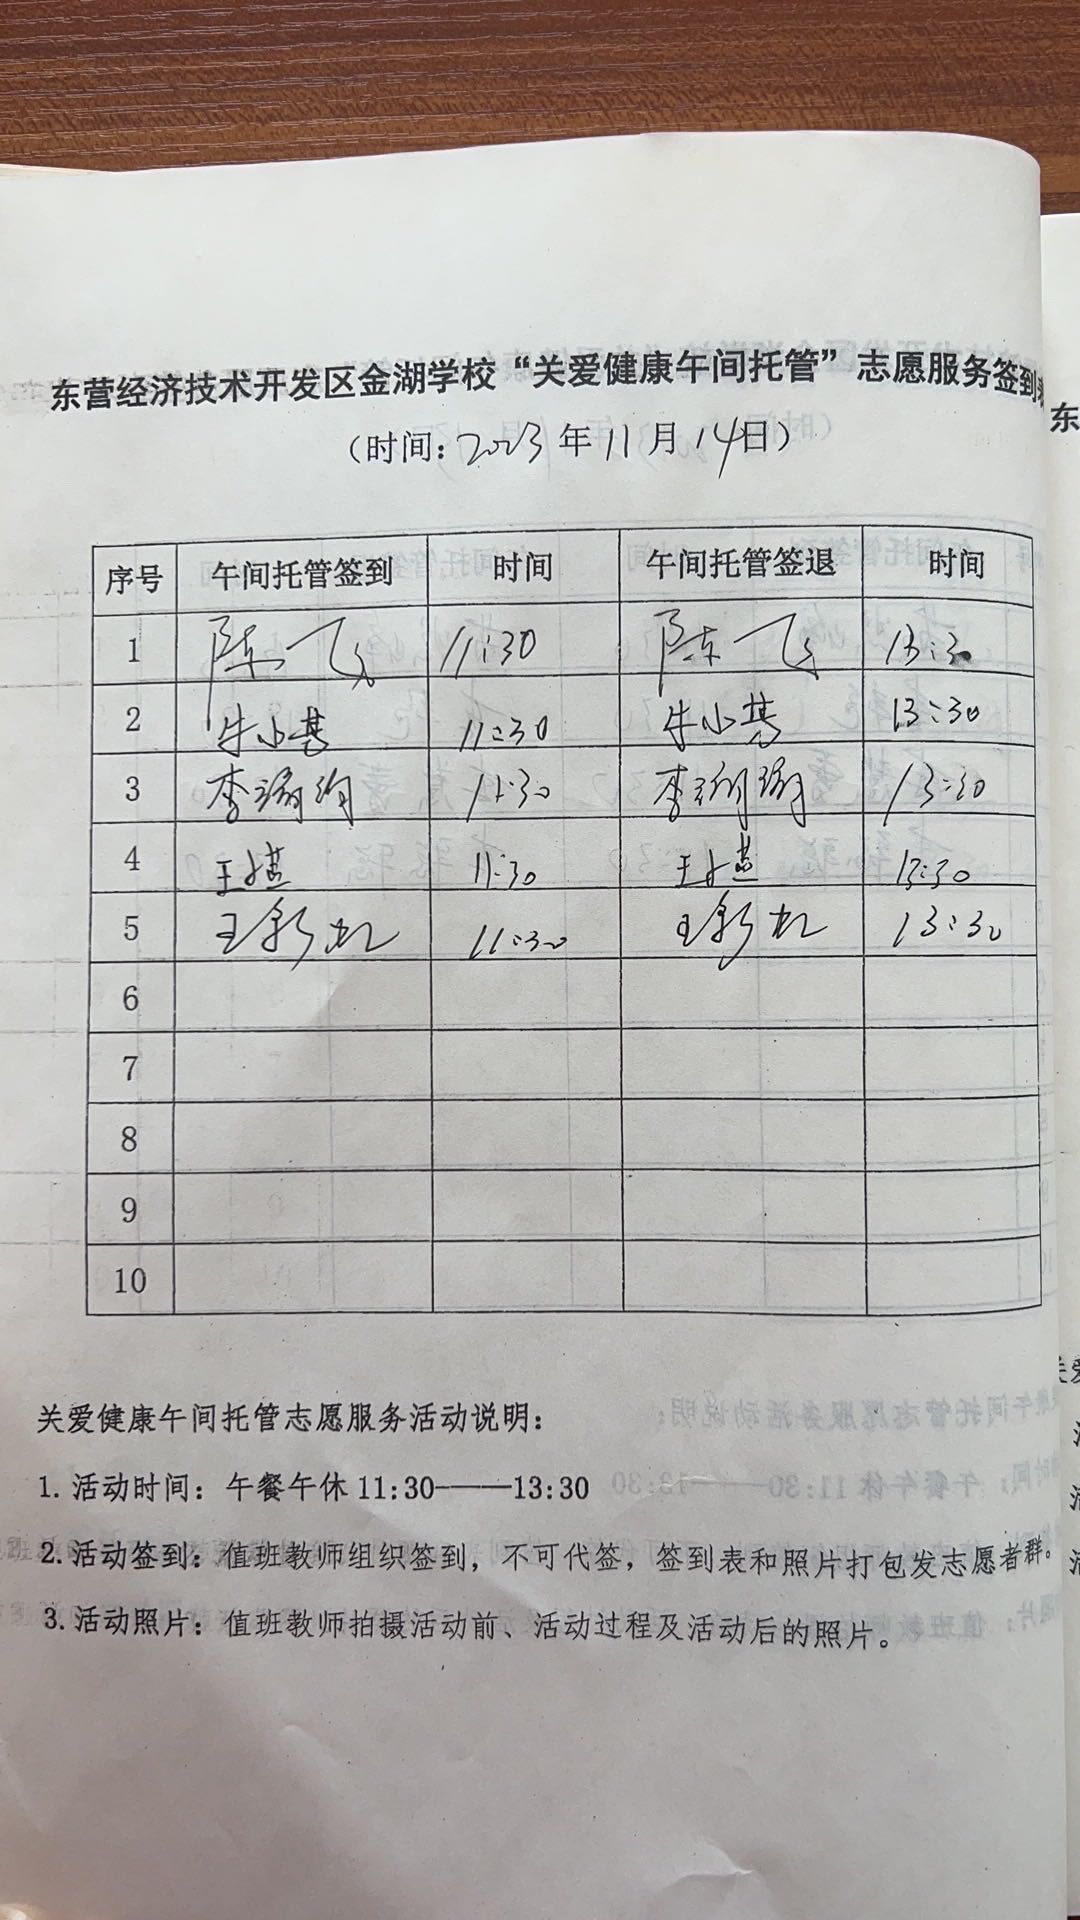 东营经济技术开发区金湖学校“关爱健康午间托管”志愿服务签到表
(时间:2023年11月14日)
序号 午间托管签到 时间 午间托管签退 时间
1 陈飞 11:30 陈飞 13:30
2 牛小茜 11:30 牛小茜 13:30
3 李 11:30 李 13:30
4 王 11:30 王 13:30
5 王彩虹 11:30 王彩虹 13:30
6
7
8
9
10
关爱健康午间托管志愿服务活动说明:
1. 活动时间: 午餐午休 11:30——13:30
2. 活动签到: 值班教师组织签到, 不可代签, 签到表和照片打包发志愿者群。
3. 活动照片: 值班教师拍摄活动前、活动过程及活动后的照片。
东